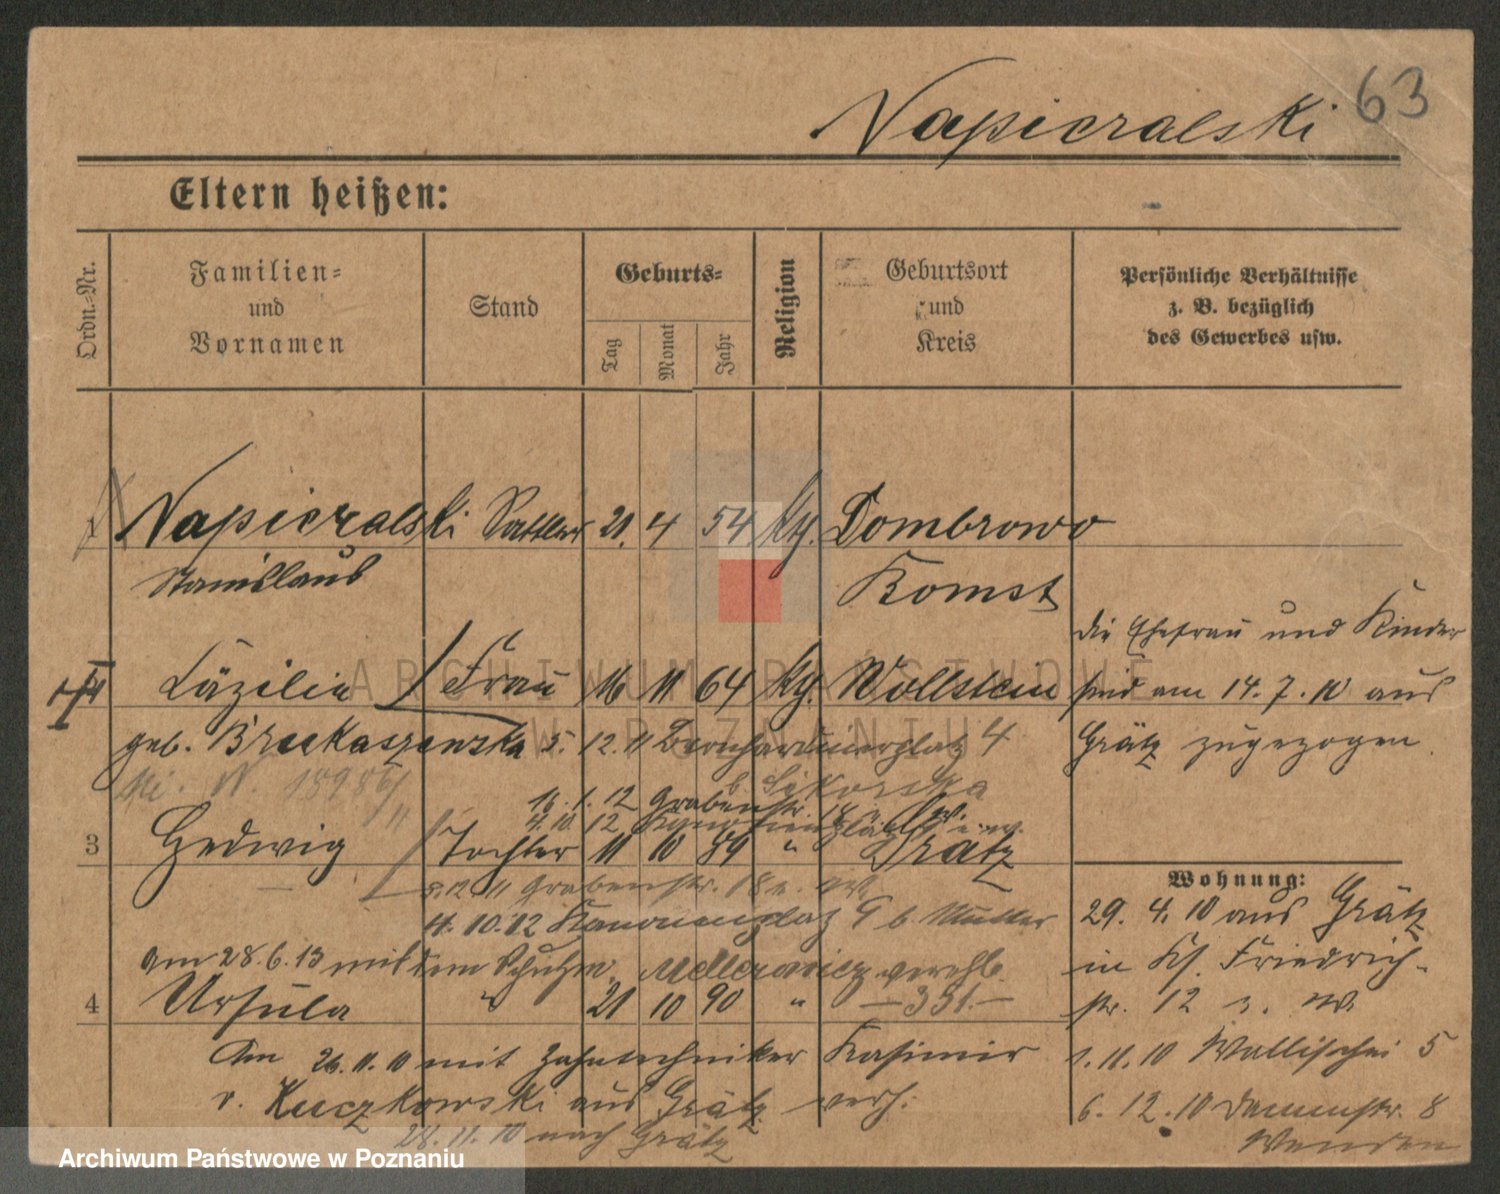 63
Napieralski
Eltern heißen:
Ordn.-Nr.
Familien- und Vornamen
Stand
Geburts-
Tag
Monat
Jahr
Religion
Geburtsort und Kreis
Persönliche Verhältnisse z. B. bezüglich des Gewerbes usw.
1 Napieralski Sattler 21. 4 54 kth. Dombrowo
Stanislaus Bomst
Die Ehefrau und Kinder
Cäzilia Frau 16 11 64 kth. Wollstein sind am 14.7.10 aus
geb. 5. 12. 11 Bernhardinerplatz 4 Grätz zugezogen.
b. Sikorska
16. 1. 12 Grabenstr.
4. 10. 12
3 Hedwig Tochter 11 10 89 " Grätz
Wohnung:
8. 12. 11 Grabenstr. 18
4. 10. 12 Kanonenplatz 9 b. Mutter 29. 4. 10 aus Grätz
am 28.6.13 mit dem Schuhm. verehl. in Friedrich-
4 Ursula " 21 10 90 " — 351. — str. 12
Am 26. 11. 10 mit Zahntechniker Kasimir 1. 11. 10 Wallischei 5
v. Kuczkowski aus Grätz verh: 6. 12. 10 Dammstr. 8
28. 11. 10 nach Grätz
ARCHIWUM PAŃSTWOWE
W POZNANIU
Archiwum Państwowe w Poznaniu